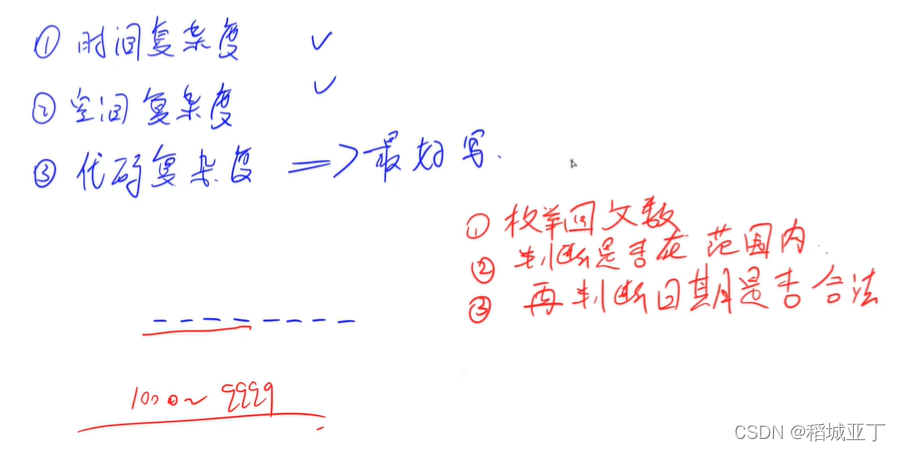 ① 时间复杂度 ✓
② 空间复杂度 ✓
③ 代码复杂度 => 最好写.
① 枚举回文数
② 判断是否在范围内
③ 再判断日期是否合法
1000~9999
CSDN @稻城亚丁